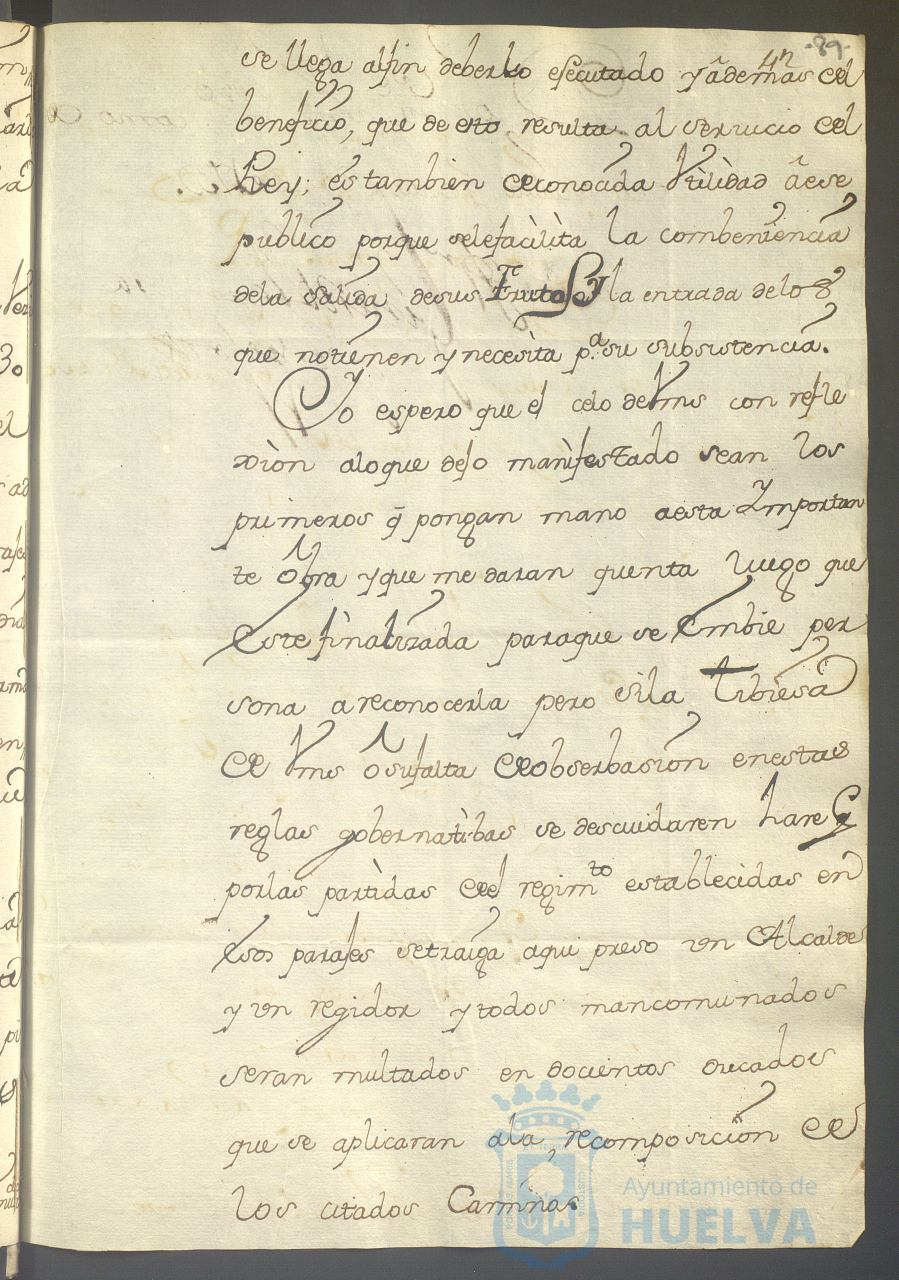 -89-
4n
se llega alfin deberlo efecutado y âdemas del
beneficio, que de esto resulta al servicio del
Rey; es tambien deconocida Vtilidad âese
publico porque selefacilita la combeniencia
dela salida desus Frutos, y la entrada delos
que notienen y necesita p.a su subsistencia.
Yo espero que el celo deVms con refle
xion aloque dejo manifestado sean los
primeros q̃ pongan mano aesta Ymportan
te Obra y que me daran quenta luego que
Este finalizada paraque se Embie per
sona areconocerla pero sila tibiesa
de Vms O sufalta deobserbasion enestas
reglas gobernatibas se descuidaren hare q
porlas partidas del regim.to establecidas en
Esos parajes setraiga aqui preso vn Alcalde
y vn regidor y todos mancomunados
seran multados en docientos ducados
que se aplicaran ala, recomposicion de
los citados Caminos.
Ayuntamiento de
HUELVA